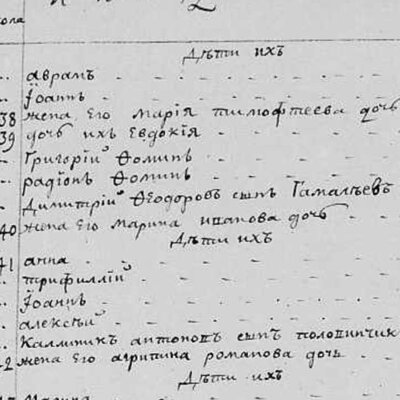 кола
Дѣти ихъ
аврамъ
Іоаннъ
38 жена Его Марія тимофѣева дочь
39 дочь ихъ Евдокія
Григорій Ѳоминъ
радіонъ Ѳоминъ
Димитрій Ѳеодоровъ сынъ Гамалѣевъ
40 жена Его Марина иванова дочь
Дѣти ихъ
41 анна
трифиллій
Іоаннъ
алексѣй
Каллиникъ антоновъ сынъ половинчик
42 жена Его агрипина романова дочь
Дѣти ихъ
Марина